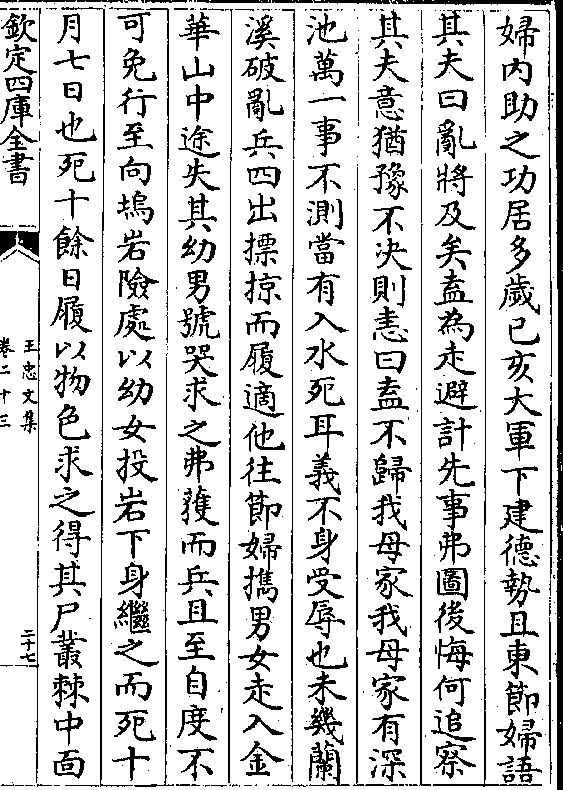 婦内助之功居多歲己亥大軍下建德勢且東節婦語
其夫曰亂將及矣盍為走避計先事弗圖後悔何追察
其夫意猶豫不決則恚曰盍不歸我母家我母家有深
池萬一事不測當有入水死耳義不身受辱也未幾蘭
溪破亂兵四出摽掠而履適他往節婦攜男女走入金
華山中途失其幼男號哭求之弗獲而兵且至自度不
可免行至向塢岩險處以幼女投岩下身繼之而死十
月七日也死十餘日履以物色求之得其尸叢棘中面
欽定四庫全書
王忠文集
卷二十三
二十七